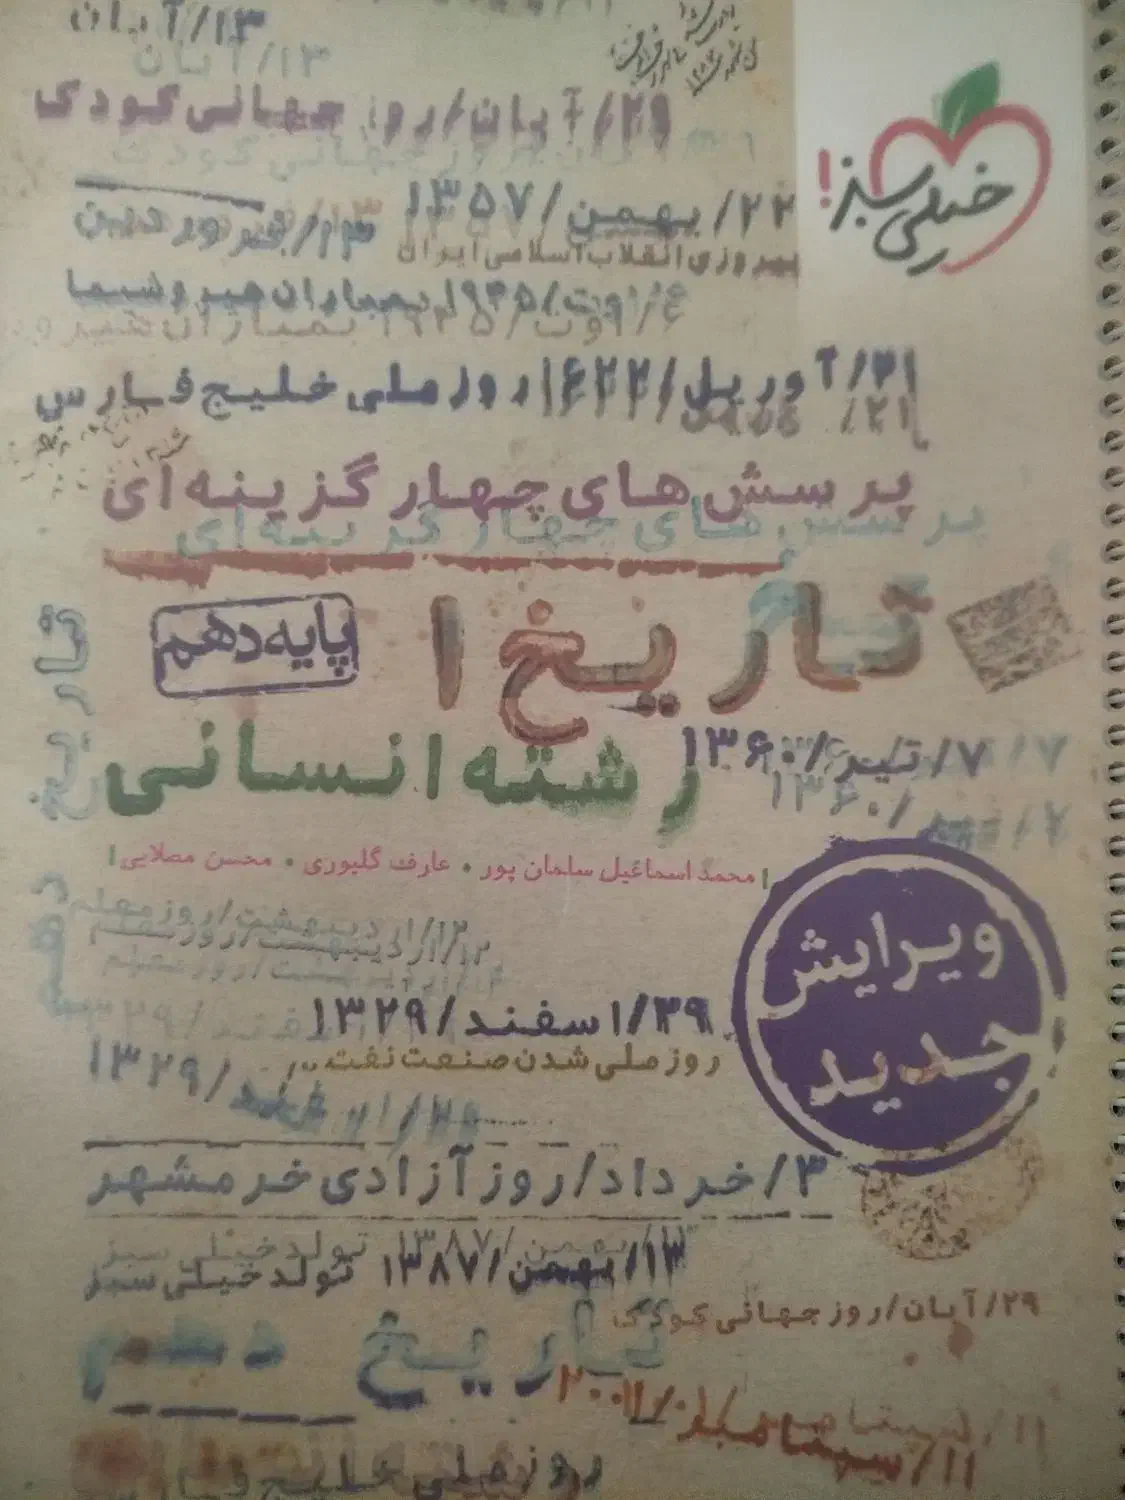 ۱۳/آبان
۱۳/آبان
خیلی سبز!
۲۹/آبان/روز جهانی کودک
۲۲/بهمن/۱۳۵۷
پیروزی انقلاب اسلامی ایران
۱۳/فروردین
۶/اوت/۱۹۴۵ بمباران هیروشیما
۶/اوت/۱۹۴۵ بمباران هیرو
۲۱/آوریل/۱۶۲۲ روز ملی خلیج فارس
پرسش های چهار گزینه ای
پرسش های چهار گزینه ای
تاریخ ۱
پایه دهم
رشته انسانی
۷/تیر/۱۳۶۰
۷/تیر/۱۳۶۰
محمد اسماعیل سلمان پور • عارف گلپوری • محسن مصلایی
تاریخ دهم
ویرایش
جدید
۱۲/اردیبهشت/روز معلم
۱۲/اردیبهشت/روز معلم
۲۹/اسفند/۱۳۲۹
روز ملی شدن صنعت نفت
۱۳۲۹/
۳/خرداد/روز آزادی خرمشهر
۱۳/بهمن/۱۳۸۷ تولد خیلی سبز
۱۳/بهمن/۱۳۸۷ تولد خیلی سبز
۲۹/آبان/روز جهانی کودک
تاریخ دهم
۱۱/سپتامبر/۲۰۰۱
روز ملی خلیج فارس